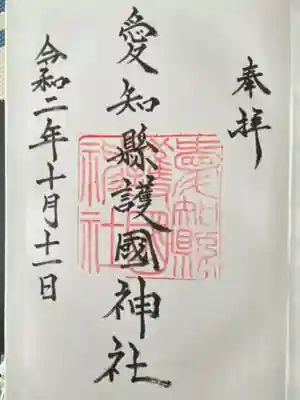 奉拝
愛知縣護國神社
令和二年十月十一日
愛知縣護國神社